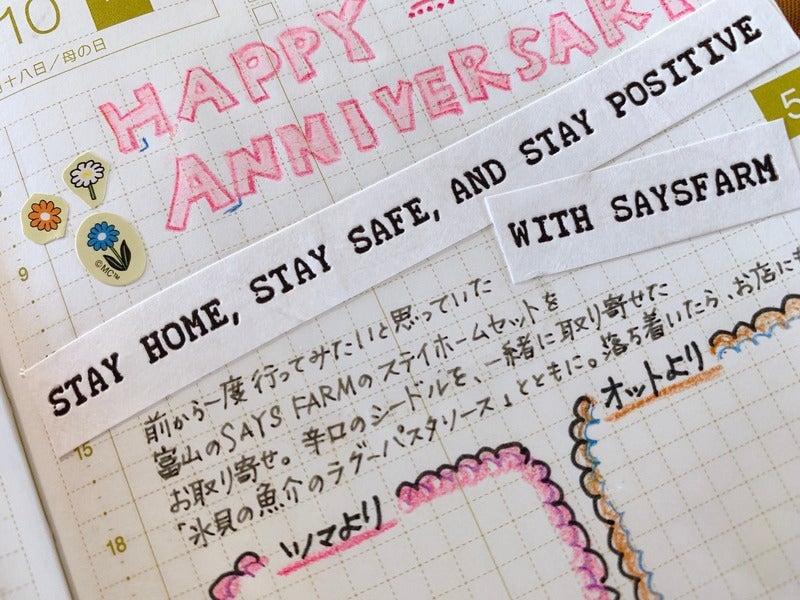 10
十八日/母の日
HAPPY
ANNIVERSARY
STAY HOME, STAY SAFE, AND STAY POSITIVE
WITH SAYSFARM
5
9
©MC™
前から一度行ってみたいと思っていた
富山のSAYS FARMのステイホームセットを
お取り寄せ。辛口のシードルを、一緒に取り寄せた
「氷見の魚介のラグーパスタソース」とともに。落ち着いたら、お店にも
15
オットより
ツマより
18